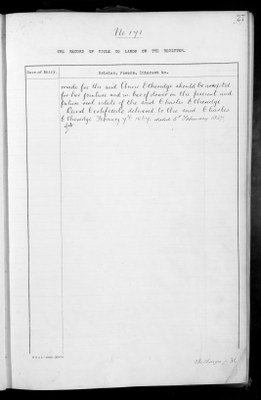 27
No 171
THE RECORD OF TITLE TO LANDS ON THE REGISTER.
Date of Entry.
Estates, Powers, Interest &c.
made for the said Annie Etheridge should be accepted
for her jointure and in bar of dower in the present and
future real estate of the said Charles Etheridge
Land Certificate delivered to the said Charles
Etheridge February 7th 1879, dated 5th February 1879.